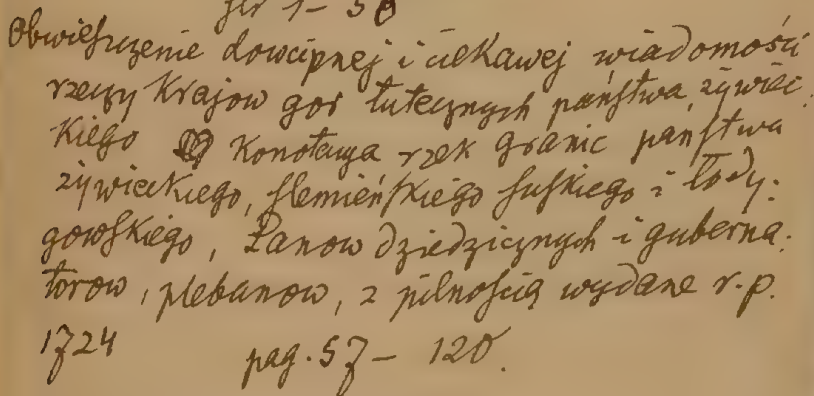 str 1 – 50
Obwieszczenie dowcipnej i ciekawej wiadomości
rzeczy Krajow gor tutecznych państwa żywiec.
kiego Konotacya rzek granic państwa
żywieckiego, slemieńskiego suskiego i Łody.
gowskiego, Panow dziedzicznych i guberna.
torow, plebanow, z pilnością wydane r. p.
1724 pag. 57 – 120.